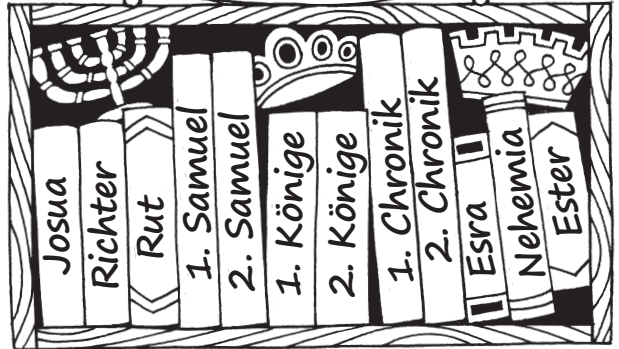 Josua
Richter
Rut
1. Samuel
2. Samuel
1. Könige
2. Könige
1. Chronik
2. Chronik
Esra
Nehemia
Ester